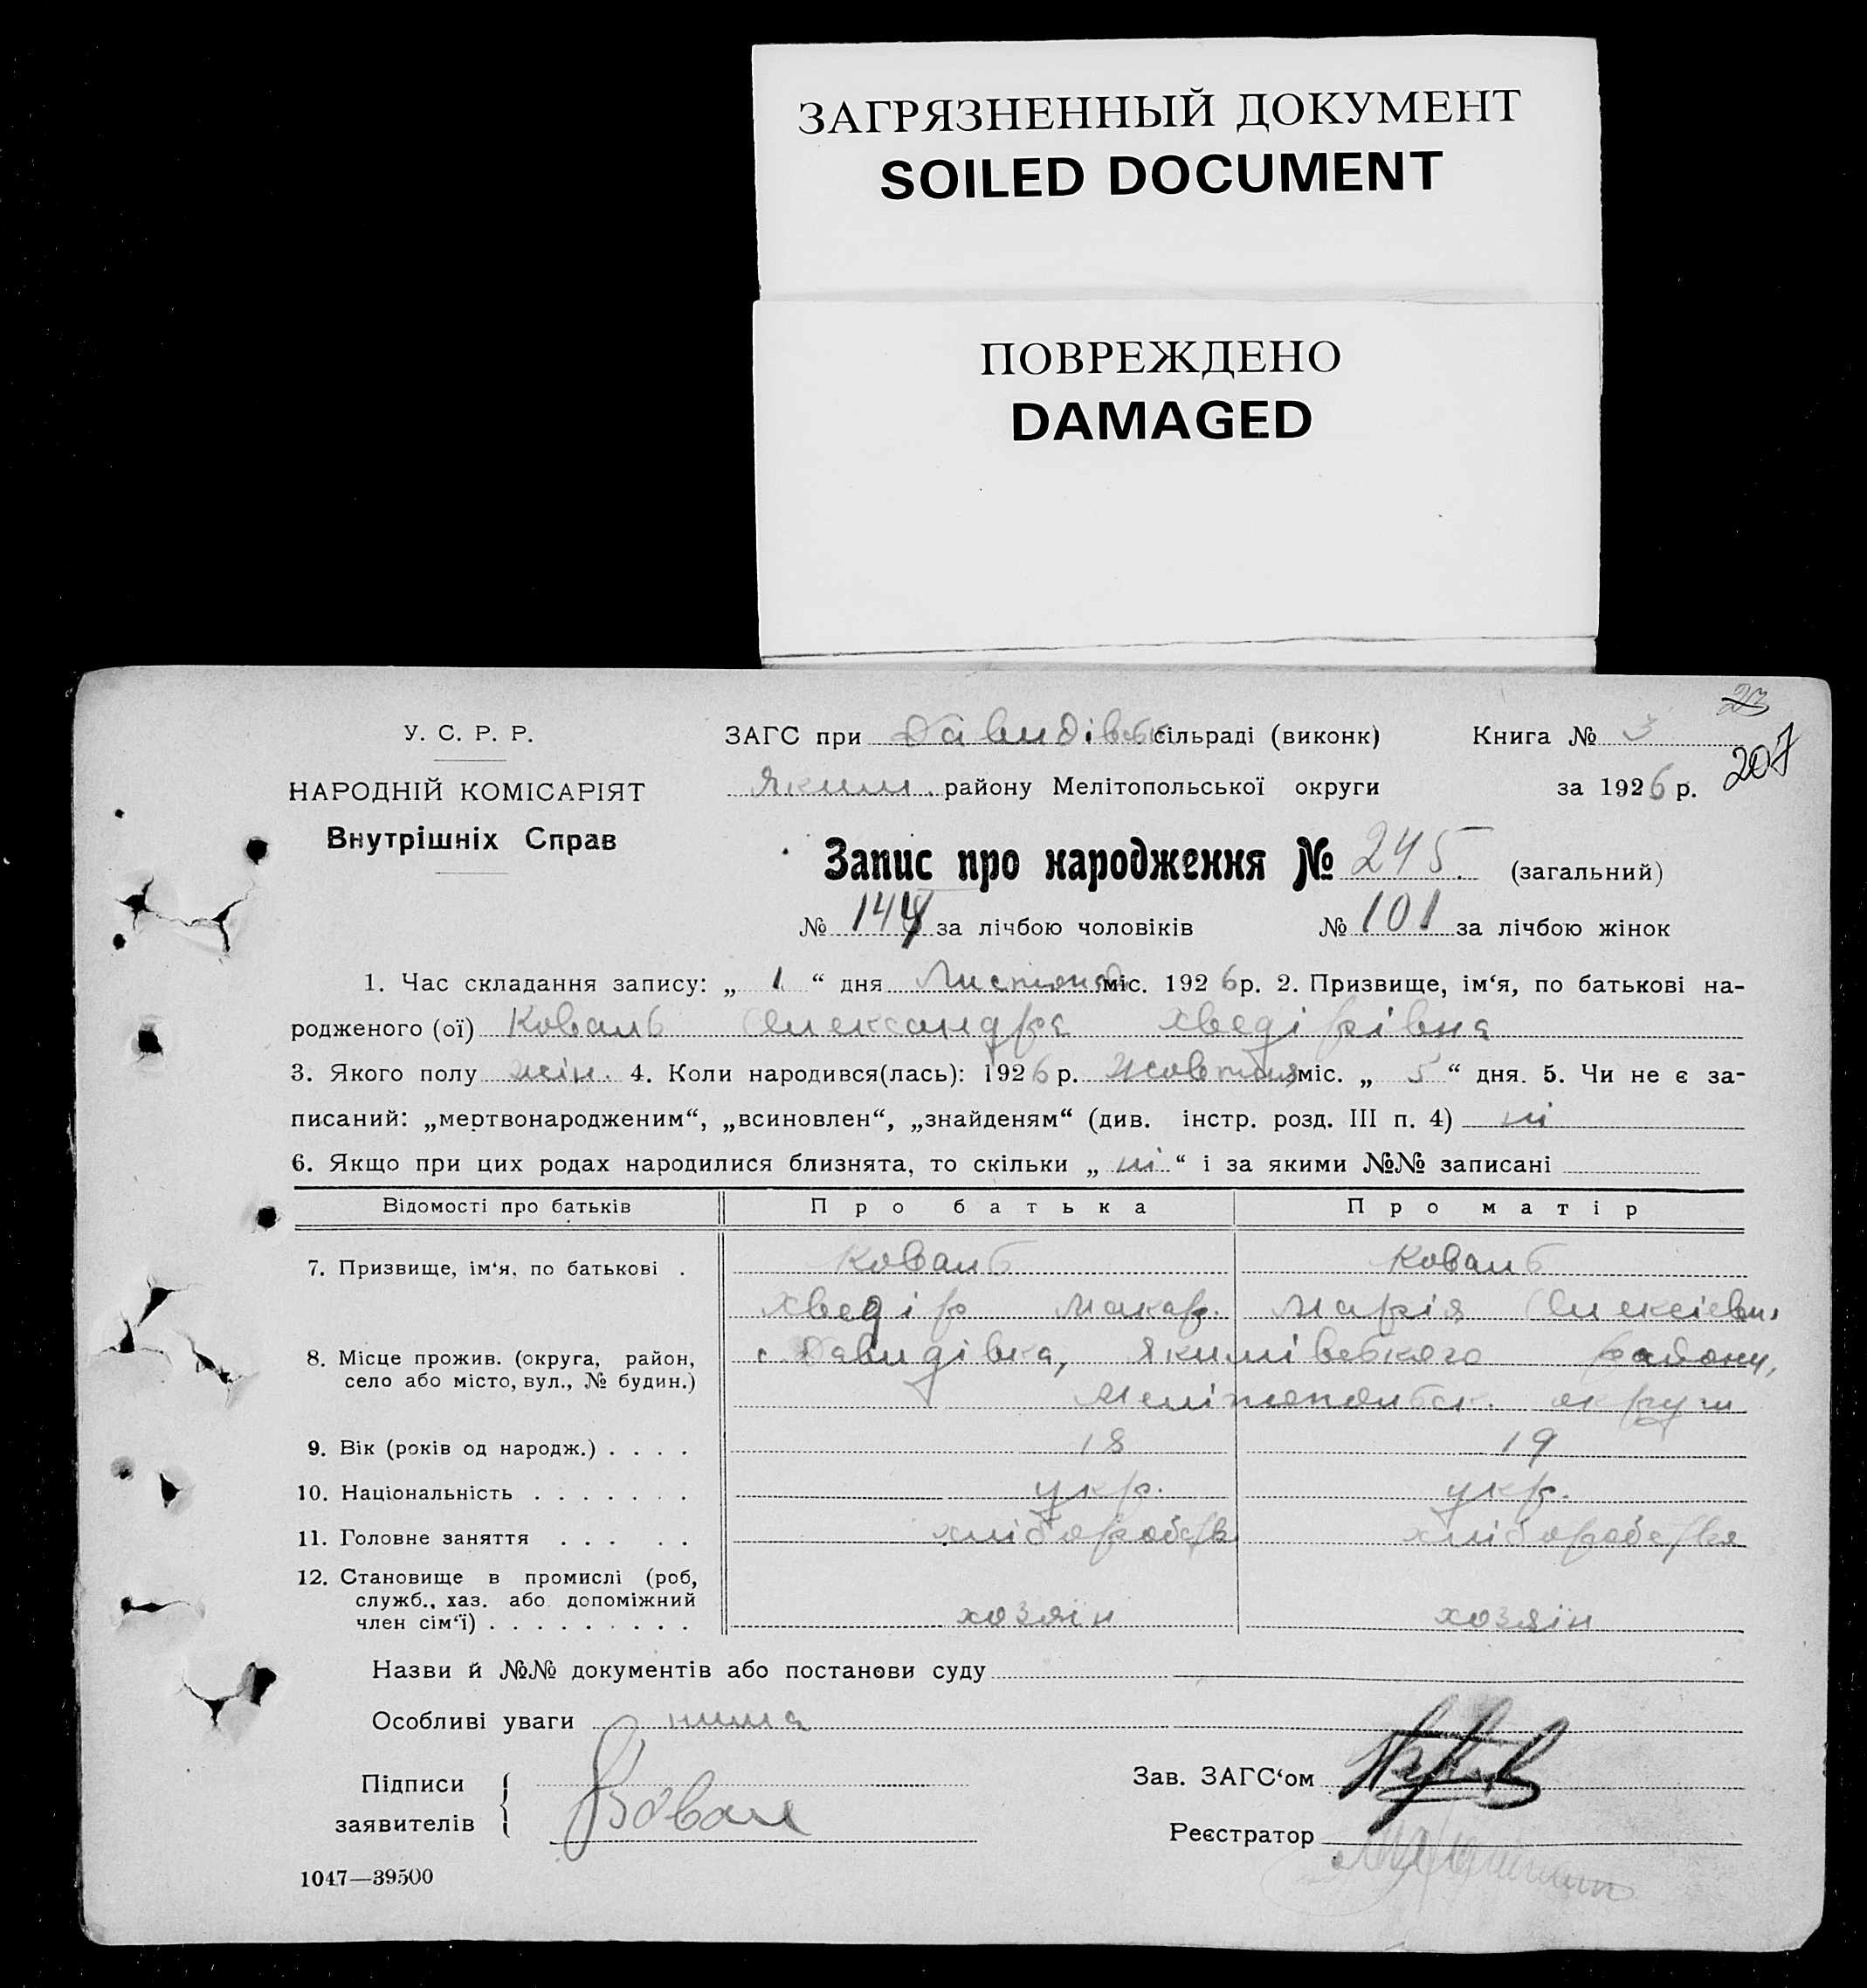 ЗАГРЯЗНЕННЫЙ ДОКУМЕНТ
SOILED DOCUMENT
ПОВРЕЖДЕНО
DAMAGED
23
У. С. Р. Р.
НАРОДНІЙ КОМІСАРІЯТ
Внутрішніх Справ
ЗАГС при Давидівськ сільраді (виконк) Книга № 3
207
Яким. району Мелітопольської округи за 1926 р.
Запис про народження № 245. (загальний)
№ 144 за лічбою чоловіків № 101 за лічбою жінок
1. Час складання запису: „ 1 “ дня Листопад міс. 1926 р. 2. Призвище, ім‘я, по батькові на-
родженого (ої) Коваль Олександра Хведірівна
3. Якого полу жін. 4. Коли народився(лась): 1926 р. Жовтня міс. „ 5 “ дня. 5. Чи не є за-
писаний: „мертвонародженим“, „всиновлен“, „знайденям“ (див. інстр. розд. III п. 4) ні
6. Якщо при цих родах народилися близнята, то скільки „ ні “ і за якими №№ записані
Відомості про батьків Про батька Про матір
7. Призвище, ім‘я, по батькові . Коваль Коваль
Хведір Макар. Марія Олексієвн.
8. Місце прожив. (округа, район, с Давидівка, Якимівського району,
село або місто, вул., № будин.)
Мелітопольськ. округи
9. Вік (років од народж.) . . . . 18 19
10. Національність . . . . . . . укр. укр.
11. Головне заняття . . . . . хліборобств хліборобства
12. Становище в промислі (роб,
служб., хаз. або допоміжний
член сім‘ї) . . . . . . . . . хозяїн хозяїн
Назви й №№ документів або постанови суду
Особливі уваги нима
Підписи
заявителів Ковал
Зав. ЗАГС‘ом
Реєстратор
1047—39500